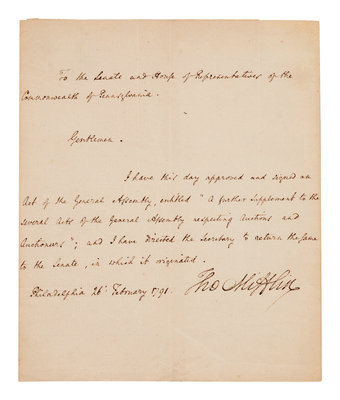 To the Senate and House of Representatives of the
Commonwealth of Pennsylvania.
Gentlemen.
I have this day approved and signed an
Act of the General Assembly, entitled "A further Supplement to the
several Acts of the General Assembly respecting Auctions and
Auctioneers"; and I have directed the Secretary to return the same
to the Senate, in which it originated.
Philadelphia 26 February 1791. Tho Mifflin